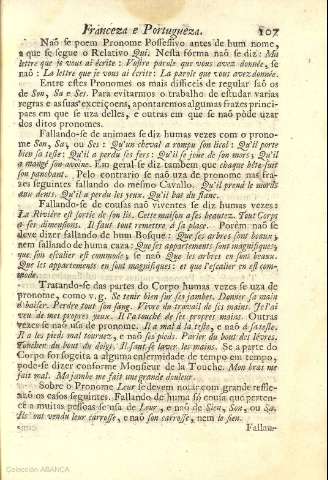 Franceza e Portugueza. 107
Naõ se poem Pronome Possessivo antes de hum nome,
a que se segue o Relativo Qui. Nesta fórma naõ se diz: Ma
lettre que je vous ai écrite: Vostre parole que vous avez donnée, se
naõ: La lettre que je vous ai écrite: La parole que vous avez donnée.
Entre estes Pronomes os mais difficeis de regular saõ os
de Son, Sa e Ses. Para evitarmos o trabalho de estudar varias
regras e as suas exceiçoens, apontaremos algumas frazes princi-
paes em que se uza delles, e outras em que se naõ póde uzar
dos ditos pronomes.
Fallando-se de animaes se diz humas vezes com o prono-
me Son, Sa, ou Ses: Qu'un cheval a rompu son licol: Qu'il porte
bien sa teste: Qu'il a perdu ses fers: Qu'il se joue de son mors: Qu'il
a mangé son avoine. Em geral se diz tambem que chaque bête suit
son panchant. Pelo contrario se naõ uza de pronome nas fra-
zes seguintes fallando do mesmo Cavallo. Qu'il prend le mords
aux dents. Qu'il a perdu les yeux. Qu'il bat du flanc.
Fallando-se de cousas naõ viventes se diz humas vezes:
La Riviére est sortie de son lit. Cette maison a ses beautez. Tout Corps
a ses dimensions. Il faut tout remettre à sa place. Porém naõ se
deve dizer fallando de hum Bosque: Que ses arbres sont beaux;
nem fallando de huma caza: Que ses appartements sont magnifiques,
que son escalier est commode; se naõ Que les arbres en sont beaux.
Que les appartements en sont magnifiques: et que l'escalier en est com-
mode.
Tratando-se das partes do Corpo humas vezes se uza de
pronome, como v. g. Se tenir bien sur ses jambes. Donner sa main
a baiser. Perdre tout son sang. Vivre du travail de ses mains. Je l'ai
veu de mes propres yeux. Il l'a touché de ses propres mains. Outras
vezes se naõ usa de pronome. Il a mal à la teste, e naõ à sa teste.
Il a les pieds mal tournez, e naõ ses pieds. Parler du bout des lévres.
Toucher du bout du doigt. Il faut se laver les mains. Se a parte do
Corpo for sogeita a alguma enfermidade de tempo em tempo,
póde-se dizer conforme Monsieur de la Touche. Mon bras me
fait mal. Ma jambe me fait une grande douleur.
Sobre o Pronome Leur se devem notar com grande refle-
xaõ os casos seguintes. Fallando de huma só cousa que perten-
ce a muitas pessoas de usa de Leur, e naõ de Sien, Son, ou Sa.
Ils ont vendu leur carrosse, e naõ son carrosse, nem le sien.
Fallan-
Colección ABANCA